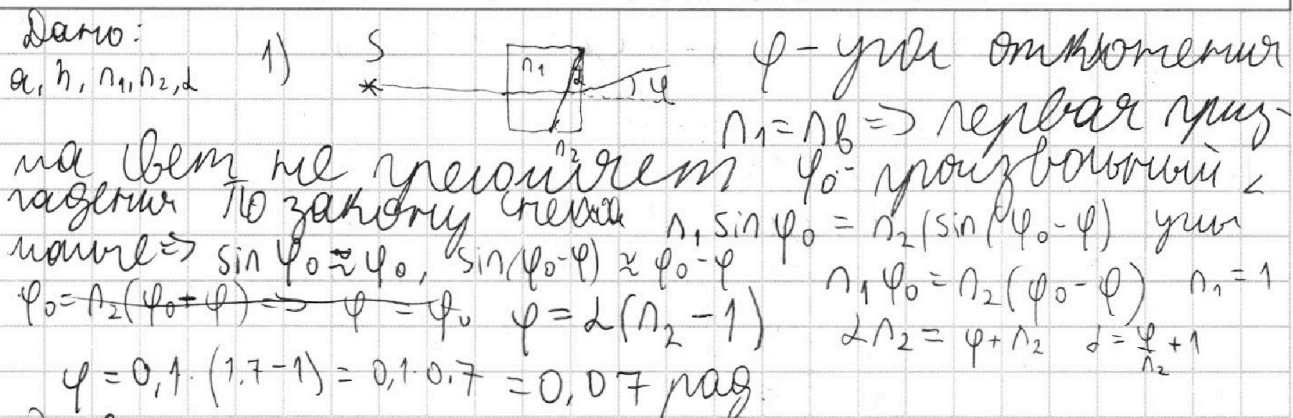 Дано:
a, h, n₁, n₂, α
1) S n₁ α φ n₂
φ - угол отклонения
n₁ = nв => первая приз-
ма свет не преломляет φ₀ - произвольный <
падения По закону Снелла n₁ sin φ₀ = n₂(sin(φ₀ - φ) углы
малые => sin φ₀ ≈ φ₀, sin(φ₀ - φ) ≈ φ₀ - φ n₁ φ₀ = n₂(φ₀ - φ) n₁ = 1
φ₀ = n₂(φ₀ - φ) => φ = φ₀ φ = α(n₂ - 1) αn₂ = φ + n₂ α = φ/n₂ + 1
φ = 0,1 · (1.7 - 1) = 0,1 · 0.7 = 0,07 рад.